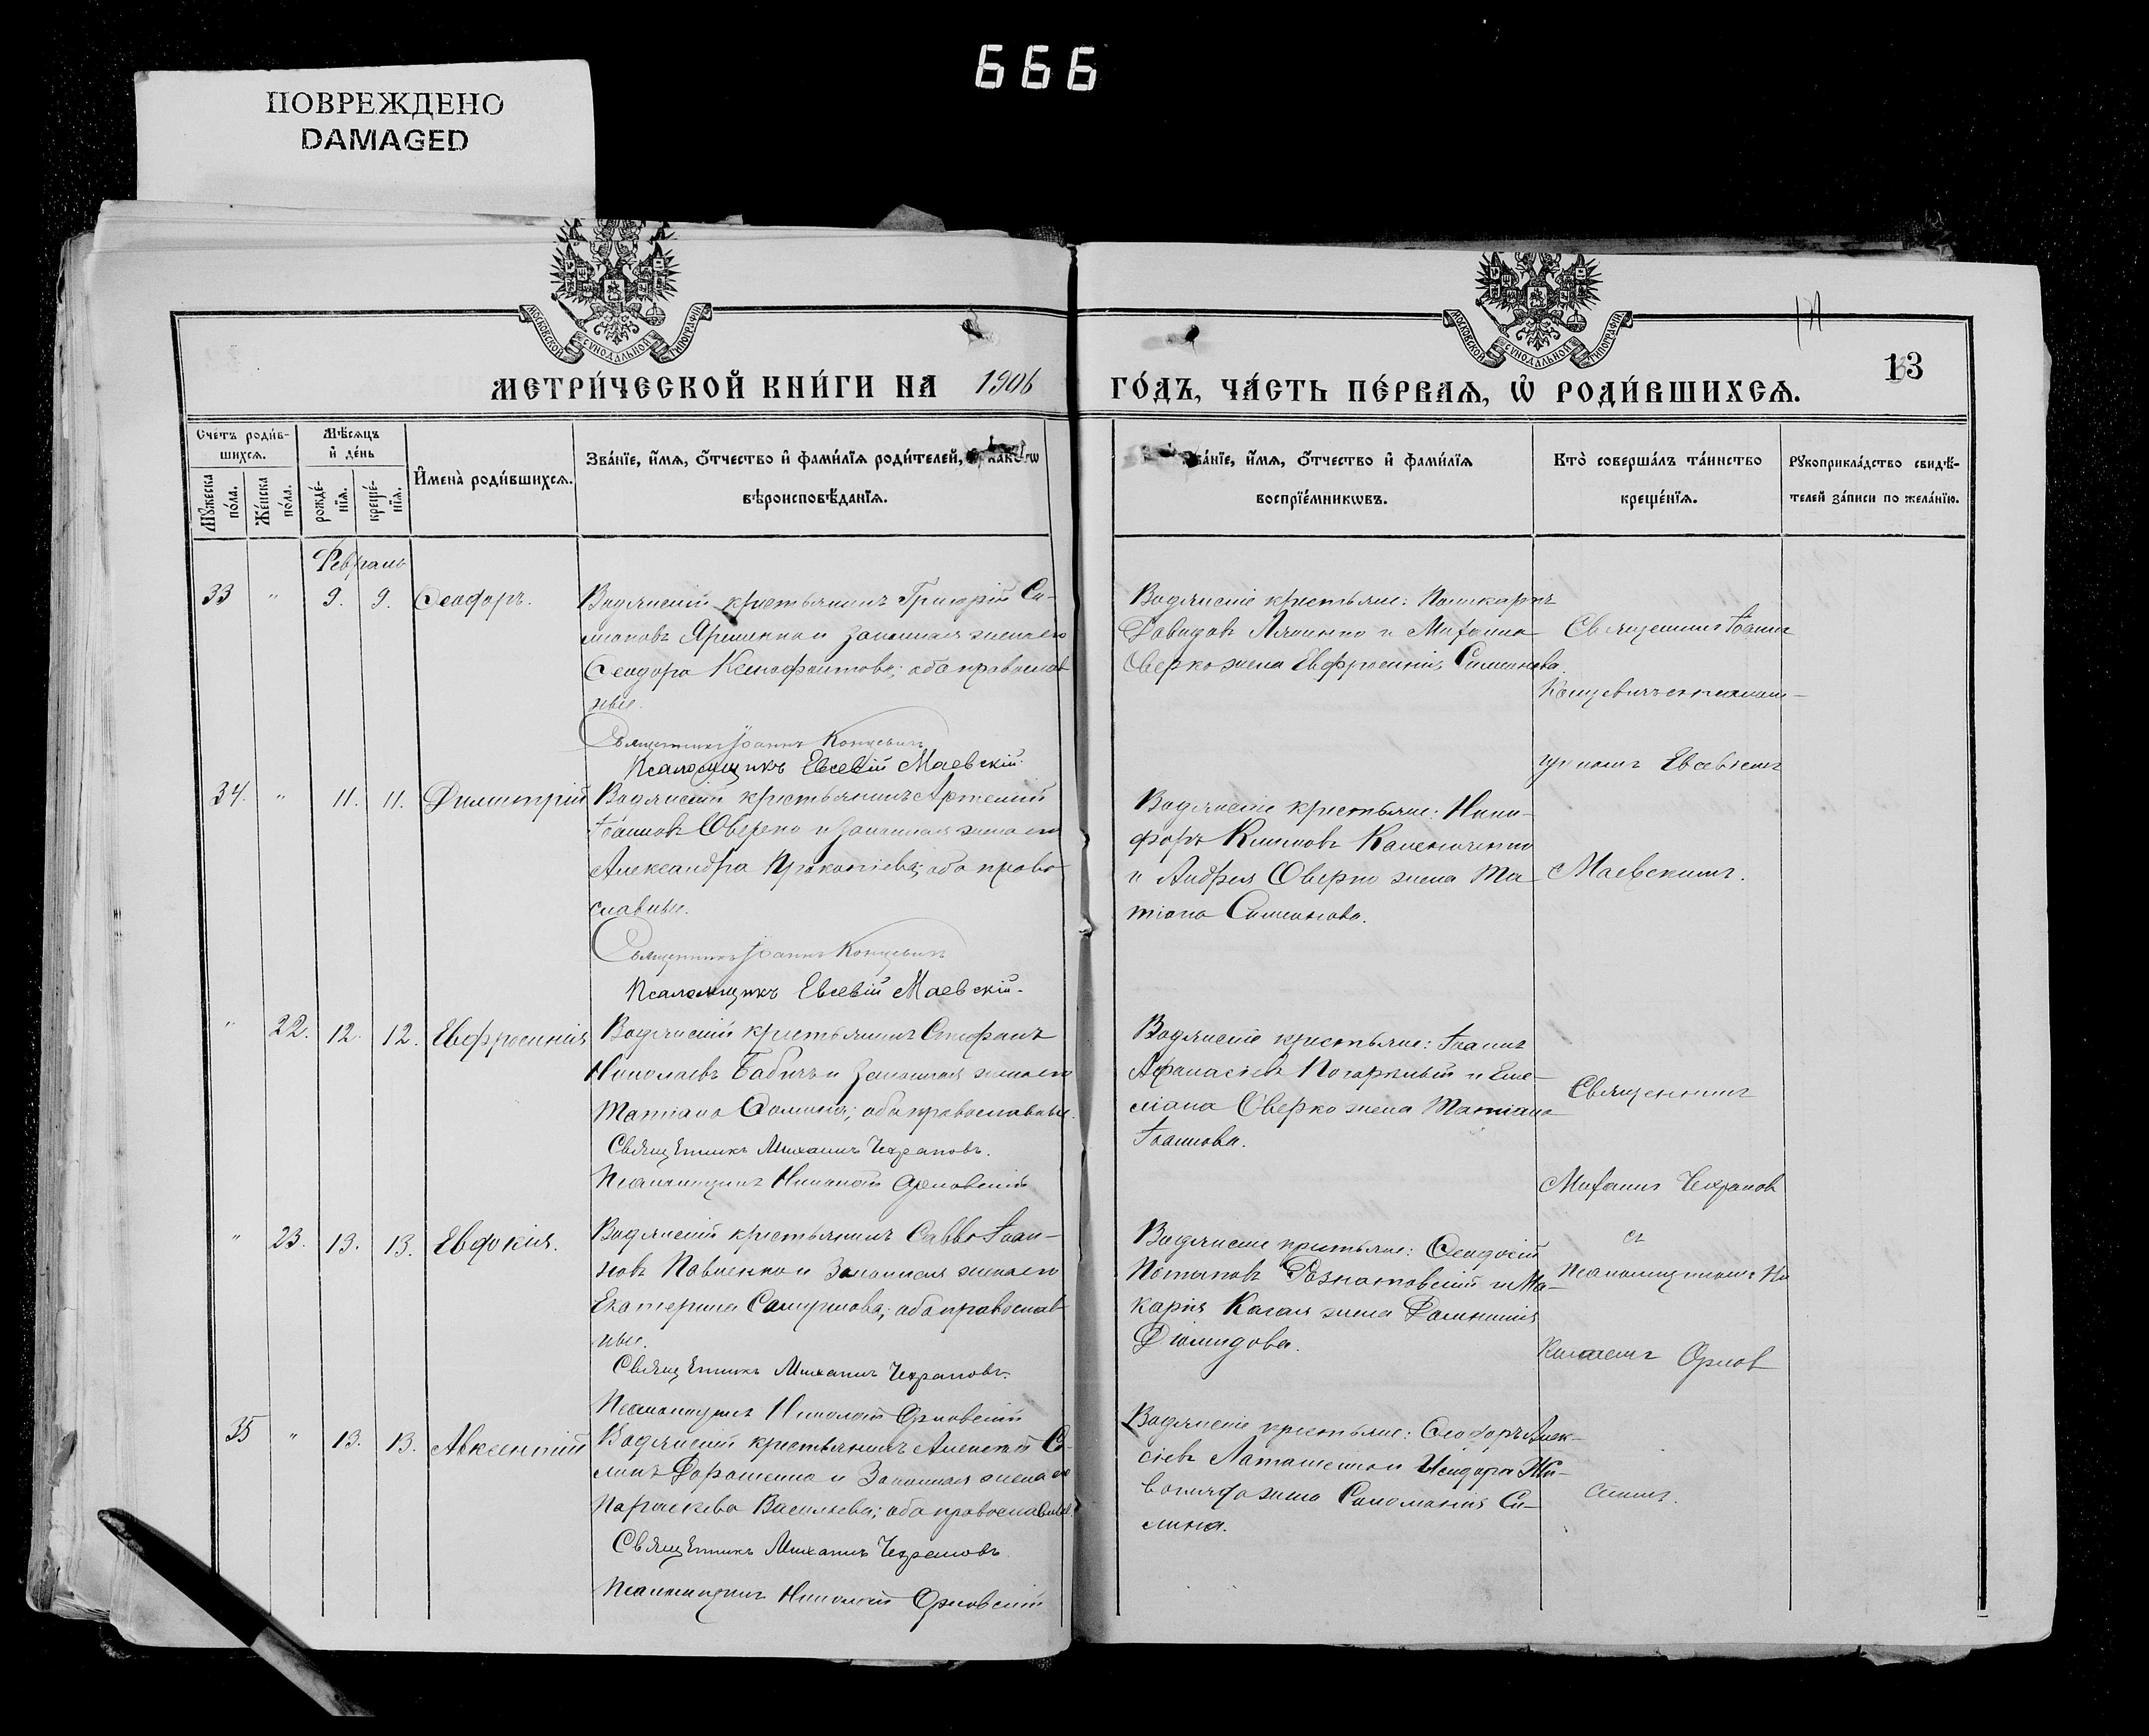 666
ПОВРЕЖДЕНО
DAMAGED
МОСКОВСКОЙ СѴНОДАЛЬНОЙ ТИПОГРАФІИ
МОСКОВСКОЙ СѴНОДАЛЬНОЙ ТИПОГРАФІИ
13
МЕТРИ́ЧЕСКОЙ КНИ́ГИ НА 1906 ГО́ДЪ, ЧА́СТЬ ПЕ́РВАЯ, Ѡ҆ РОДИ́ВШИХСЯ.
Сче́тъ роди́в-
шихся.
Мѣ́сяцъ
и҆ де́нь
Мꙋ́жеска
по́ла.
Же́нска
по́ла.
рожде́-
нїя.
креще́-
нїя.
И҆мена̀ роди́вшихся.
Зва́нїе, и҆́мя, ѻ҆́тчество и҆ фами́лїя роди́телей,
вѣроисповѣ́данїя.
зва́нїе, и҆́мя, ѻ҆́тчество и҆ фами́лїя
воспрїе́мникѡвъ.
Кто̀ соверша́лъ та́инство
креще́нїя.
Рꙋкоприкла́дство свидѣ́-
телей за́писи по жела́нїю.
Февраль
33 " 9. 9. Ѳеодоръ.
Водянскій крестьянинъ Григорій Си-
моновъ Яременко и законная жена его
Ѳеодора Ксенофонтова; оба православ
ные.
Священникъ Іоаннъ Концевичъ
Псаломщикъ Евсевій Маевскій.
Водянскіе крестьяне: Поликарпъ
Давидовъ Ляшенко и Михаила
Оверко жена Евфросинія Симонова.
Священникъ Іоаннъ
Концевичъ съ псалом-
щикомъ Евсевіемъ
Маевскимъ.
34. " 11. 11. Димитрій
Водянскій крестьянинъ Артемій
Іоанновъ Оверко и законная жена его
Александра Прокопіева; оба право
славные.
Священникъ Іоаннъ Концевичъ
Псаломщикъ Евсевій Маевскій.
Водянскіе крестьяне: Ники-
форъ Климовъ
и Андрея Оверко жена Та
тіана Симонова.
" 22. 12. 12. Евфросинія
Водянскій крестьянинъ Стефанъ
Николаевъ Бабичъ и законная жена его
Татіана Ѳомина; оба православные.
Священникъ Михаилъ Чехрановъ.
Псаломщикъ Николай Орловскій
Водянскіе крестьяне: Іоаннъ
Афанасіевъ Погорѣлый и Еме-
ліана Оверко жена Татіана
Іоаннова.
Священникъ
Михаилъ Чехранов
съ
псаломщикомъ Ни
колаемъ Орлов
скимъ.
" 23. 13. 13. Евдокія.
Водянскій крестьянинъ Савва Іоан-
новъ Павленко и законная жена его
Екатерина; оба православ
ные.
Священникъ Михаилъ Чехрановъ.
Псаломщикъ Николай Орловскій
Водянскіе крестьяне: Ѳеодосій
Потаповъ и Ма-
карія Кагал жена Домникія
Діомидова.
35 " 13. 13. Авксентій
Водянскій крестьянинъ Алексѣй Си-
минъ Дорошенко и законная жена его
Параскева Васильева; оба православные.
Священникъ Михаилъ Чехрановъ.
Псаломщикъ Николай Орловскій
Водянскіе крестьяне: Ѳеодоръ Алек-
сіевъ и Исидора Жи-
вогляда жена Соломонія Си-
мина.